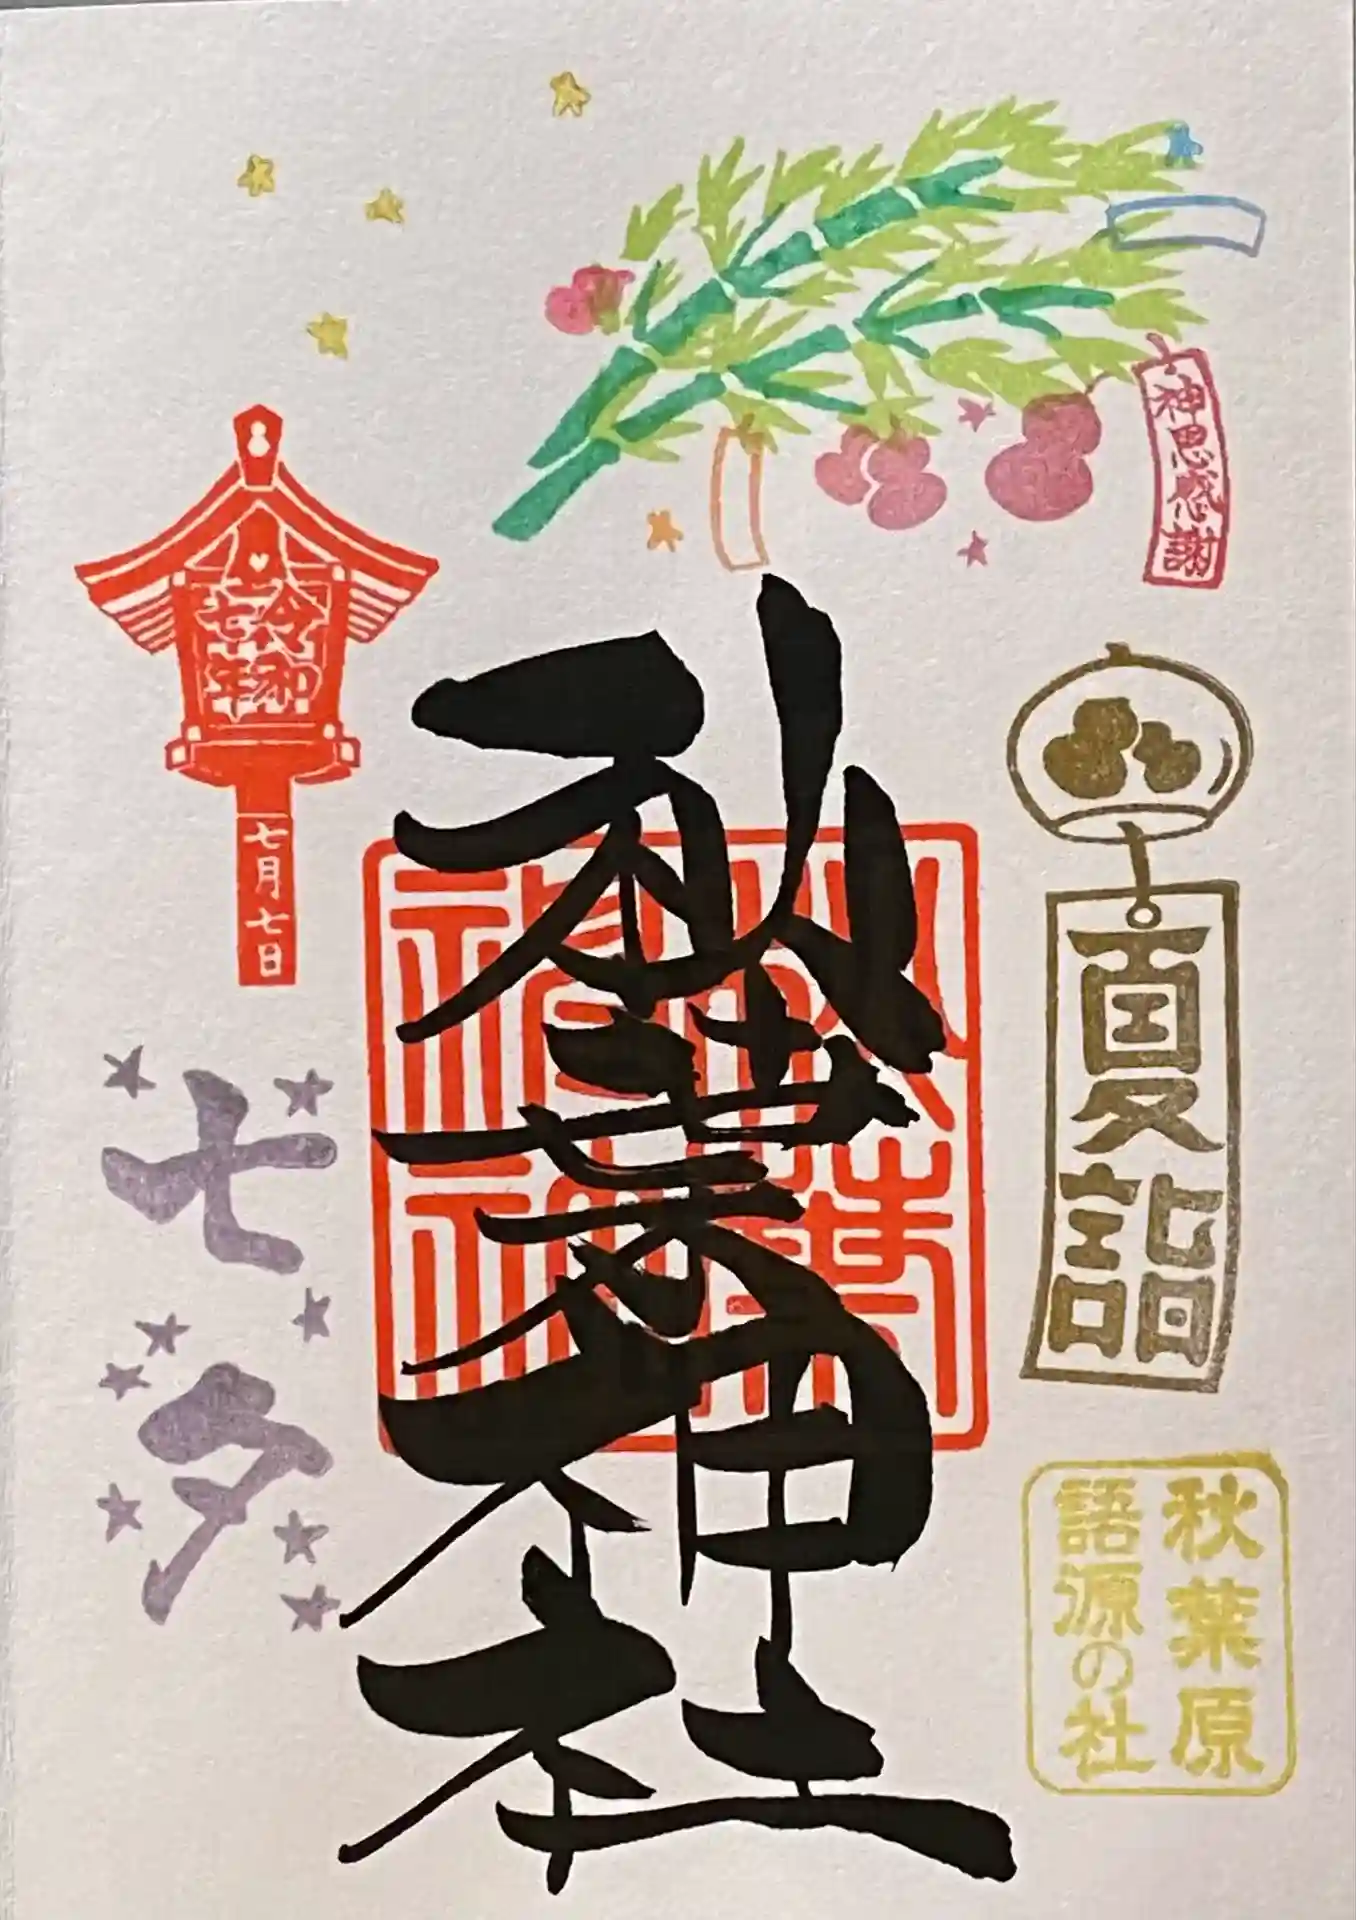 神恩感謝
夏詣
秋葉原
語源の社
秋葉神社
秋葉
神社
令和
七年
七月七日
七夕